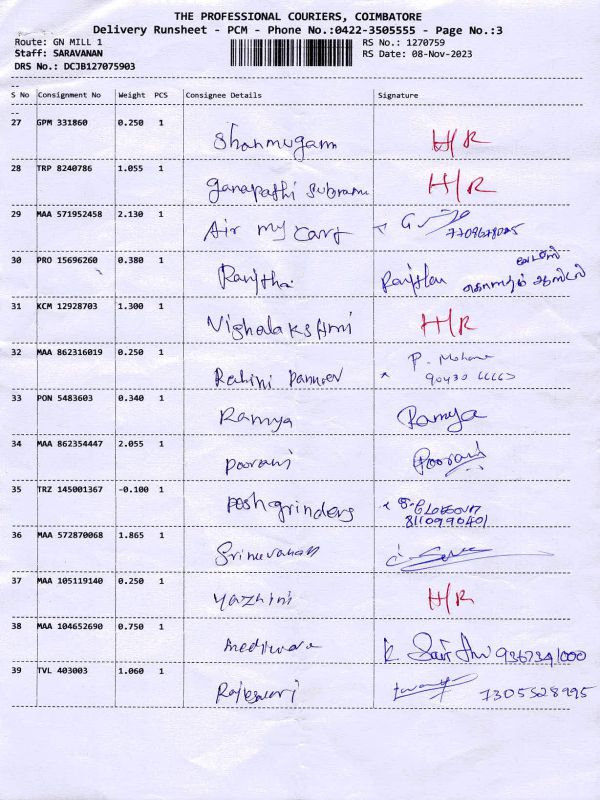 THE PROFESSIONAL COURIERS, COIMBATORE
Delivery Runsheet - PCM - Phone No.:0422-3505555 - Page No.:3
Route: GN MILL 1 RS No.: 1270759
Staff: SARAVANAN RS Date: 08-Nov-2023
DRS No.: DCJB127075903
--
S No Consignment No Weight PCS Consignee Details Signature
--
27 GPM 331860 0.250 1 Shanmugam H/R
28 TRP 8240786 1.055 1 ganapathi H/R
29 MAA 571952458 2.130 1 Air my cart
30 PRO 15696260 0.380 1 Ranjtha
31 KCM 12928703 1.300 1 H/R
32 MAA 862316019 0.250 1 P. Mohana
33 PON 5483603 0.340 1 Ramya Ramya
34 MAA 862354447 2.055 1 poorani Poorani
35 TRZ 145001367 -0.100 1 poshgrinders
8110990401
36 MAA 572870068 1.865 1
37 MAA 105119140 0.250 1 yazhini H/R
38 MAA 104652690 0.750 1 K
39 TVL 403003 1.060 1 Rajeswari 7305328995